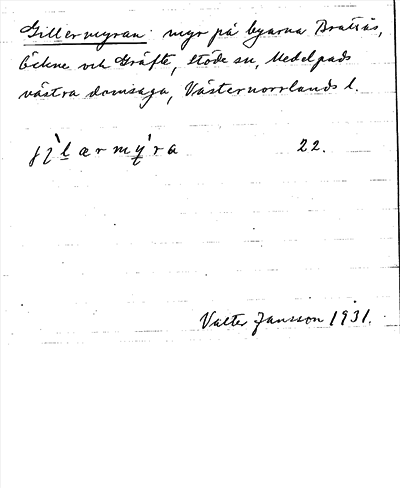 Gillermyran: myr på byarna Brattås,
Öckne och Gräfte, Stöde sn, Medelpads
västra domsaga, Västernorrlands l.
jìlærmýra 22.
Valter Jansson 1931.